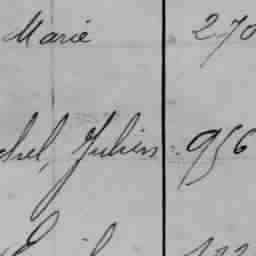 Marie 270
chel, Julien 956